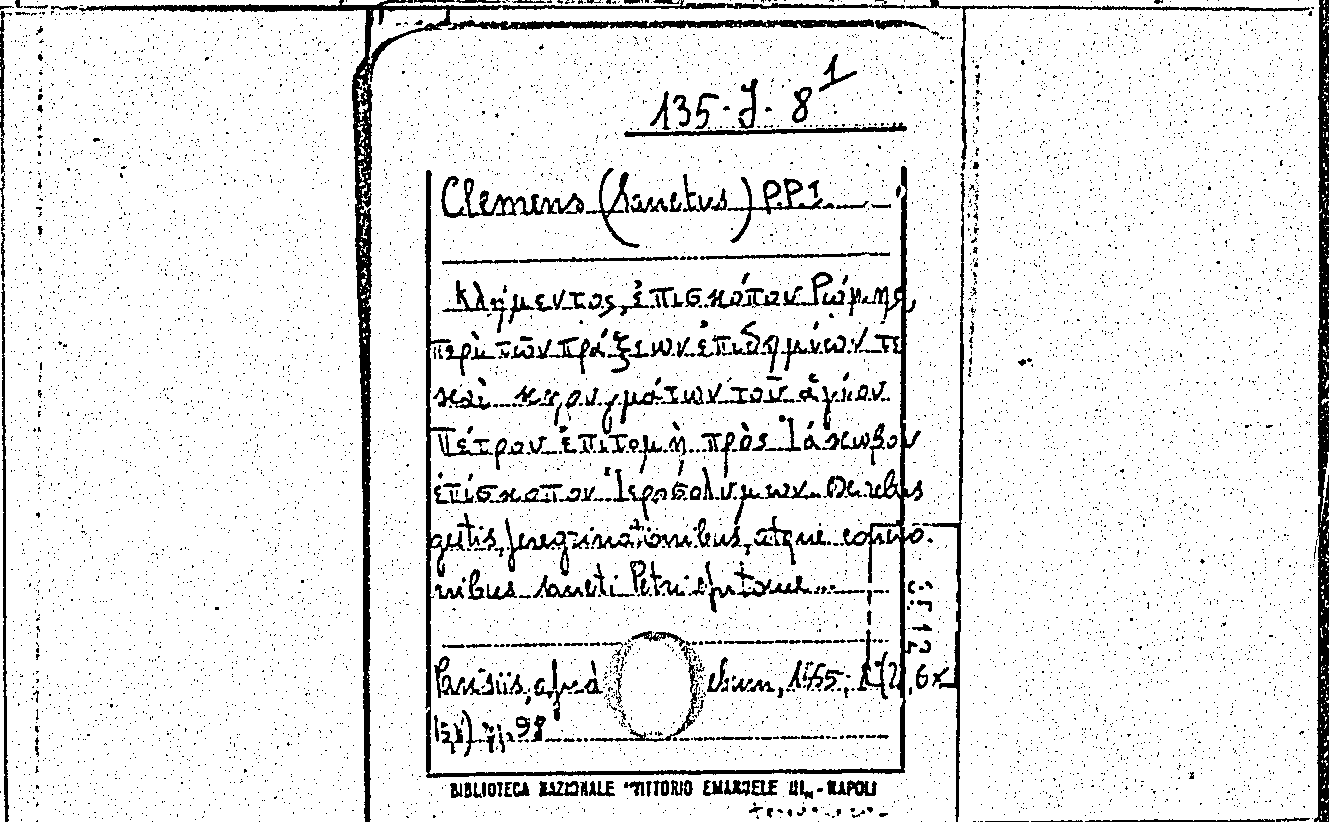 135·J·8¹
Clemens (Sanctus) PP1
Κλήμεντος, ἐπισκόπου Ῥώμης,
περὶ τῶν πράξεων ἐπιδημιῶν τε
καὶ κηρυγμάτων τοῦ ἁγίου
Πέτρου ἐπιτομὴ πρὸς Ἰάκωβον
ἐπίσκοπον Ἱεροσολύμων. De rebus
gestis, peregrinationibus, atque concio-
nibus sancti Petri epitome...
Parisiis, apud 1555,
98
BIBLIOTECA NAZIONALE "VITTORIO EMANUELE III" - NAPOLI